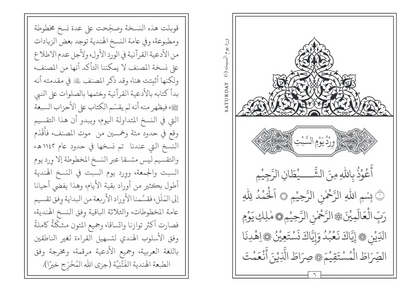 ورد يوم السبت (١)
SATURDAY
وِرْدُ يَوْمِ السَّبْتِ
أَعُوذُ بِاللهِ مِنَ الشَّيْطَانِ الرَّجِيْمِ
بِسْمِ اللهِ الرَّحْمٰنِ الرَّحِيْمِ ۞ اَلْحَمْدُ لِلّٰهِ
رَبِّ الْعَالَمِيْنَ ۞ الرَّحْمٰنِ الرَّحِيْمِ ۞ مٰلِكِ يَوْمِ
الدِّيْنِ ۞ إِيَّاكَ نَعْبُدُ وَإِيَّاكَ نَسْتَعِيْنُ ۞ اِهْدِنَا
الصِّرَاطَ الْمُسْتَقِيْمَ ۞ صِرَاطَ الَّذِيْنَ أَنْعَمْتَ
٦
قوبلت هذه النسخة وصحّحت على عدة نسخ مخطوطة
ومطبوعة، وفي عامة النسخ الهندية توجد بعض الزيادات
من الأدعية القرآنية في الورد الأول، ولأجل عدم الاطلاع
على نسخة المصنف لا يمكننا التأكد أنها من المصنف،
ولكنها أثبتت هنا، وقد ذكر المصنف في مقدمته أنه
بدأ كتابه بالأدعية القرآنية وختمها بالصلوات على النبي
ﷺ، فيظهر منه أنه لم يقسّم الكتاب على الأحزاب السبعة
في النسخ المتداولة اليوم، ويبدو أن هذا التقسيم
وقع في حدود مئة وخمسين من موت المصنف، فأقدم
النسخ التي عندنا تم نسخها في حدود عام ١١٤٢ هـ
والتقسيم ليس متسقا عبر النسخ المخطوطة إلا ورد يوم
السبت والجمعة، وورد يوم السبت في النسخ الهندية
أطول بكثير من أوراد بقية الأيام، وهذا يفضي أحيانا
إلى الملل، فقسّمنا الأوراد الأربعة من البداية وفق تقسيم
عامة المخطوطات، والثلاثة الباقية وفق النسخ الهندية،
فصارت أكثر توازنا واتساقا، وجميع المتون مشكّلة كاملة
وفق الأسلوب الهندي لتسهيل القراءة لغير الناطقين
باللغة العربية، وجميع الأدعية مرقمة، ومخرجة وفق
الطبعة الهندية (جزى الله المخرّج خيرا).